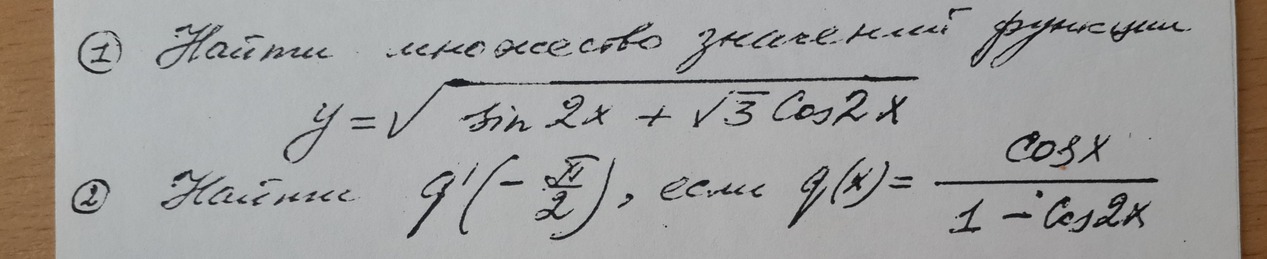 ① Найти множество значений функции
y = √(sin 2x + √3 Cos2x)
② Найти q'(-π/2), если q(x) = cosx / (1 - Cos2x)